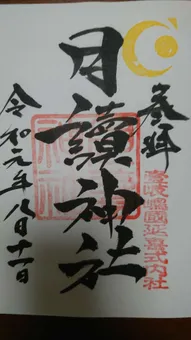 参拜
壱岐嶋國延喜式内社
月讀神社
令和元年八月十一日